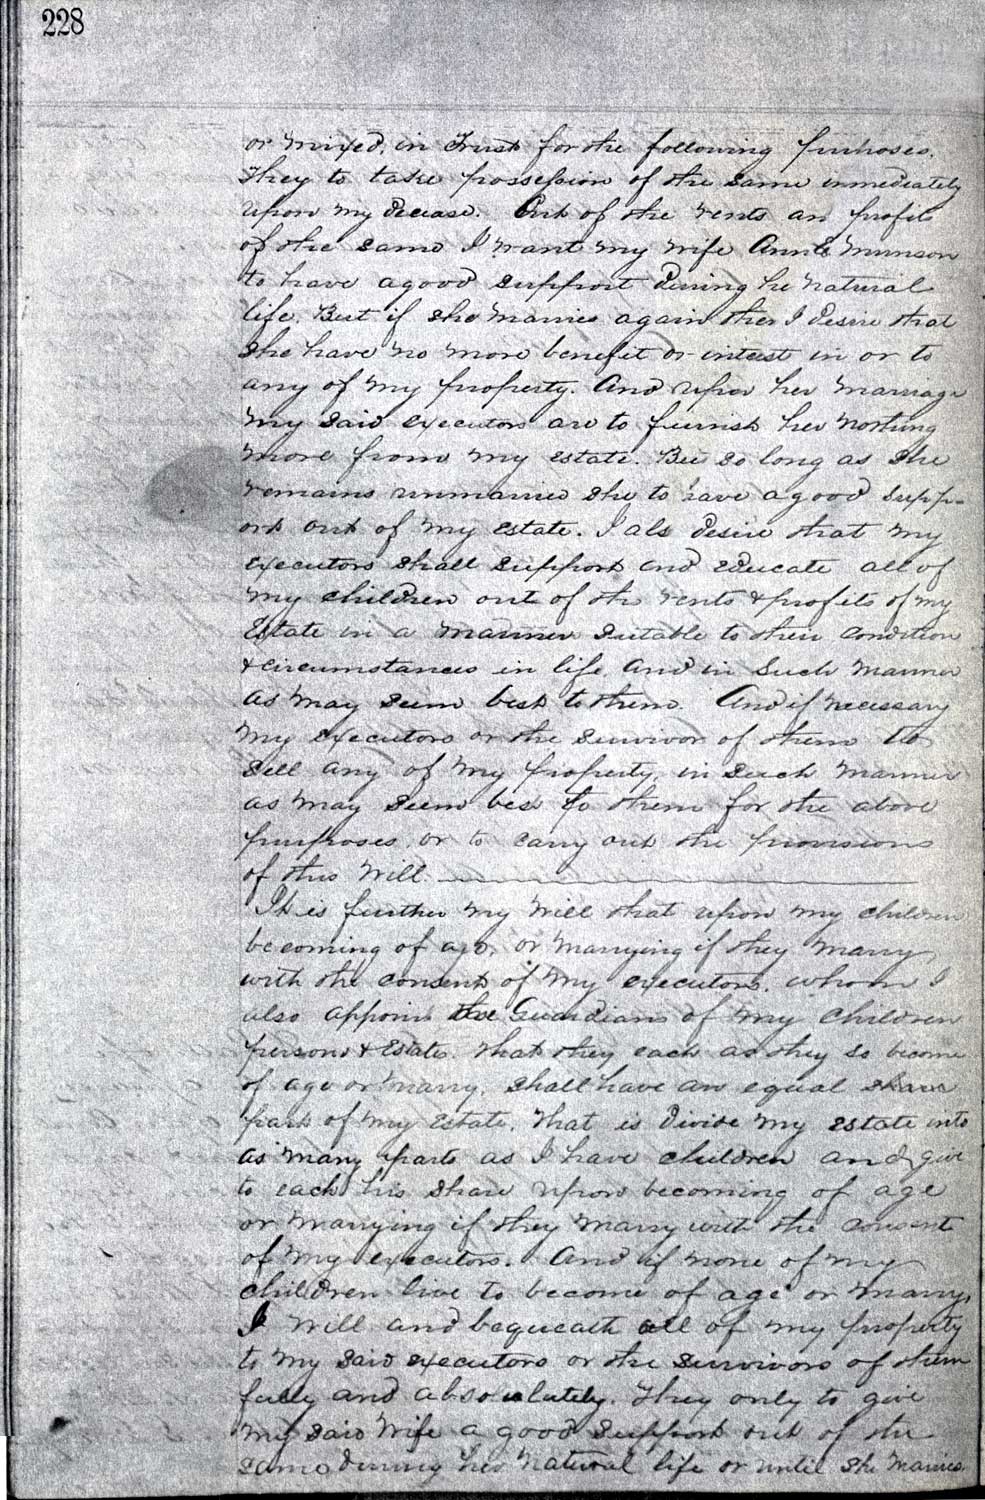 228
or mixed, in Trust for the following purposes.
They to take possession of the same immediately
upon my decease. Out of the rents an profits
of the same I want my wife Munson
to have a good support During he natural
life. But if she marries again then I desire that
she have no more benefit or interest in or to
any of my property. And upon her marriage
my said executors are to furnish her nothing
more from my estate. But so long as she
remains unmarried she to have a good supp-
ort out of my estate. I als desire that my
executors shall support and educate all of
my children out of the rents & profits of my
Estate in a manner suitable to their condition
& circumstances in life and in such manner
as may seem best to them. And if necessary
my executors or the survivor of them to
sell any of my property, in such manner
as may seem best to them for the above
purposes, or to carry out the provisions
of this will.
It is further my will that upon my children
becoming of age, or marrying if they marry
with the consent of my executors, whom I
also appoint the Guardians of my children
persons & Estate. that they each as they so become
of age or marry, shall have an equal share
part of my Estate. that is divide my estate into
as many parts as I have children and give
to each his share upon becoming of age
or marrying if they marry with the consent
of my executors. And if none of my
children live to become of age or marry,
I will and bequeath all of my property
to my said executors or the survivors of them
fully and absolutely. They only to give
my said wife a good support out of the
same during her natural life or until she marries.